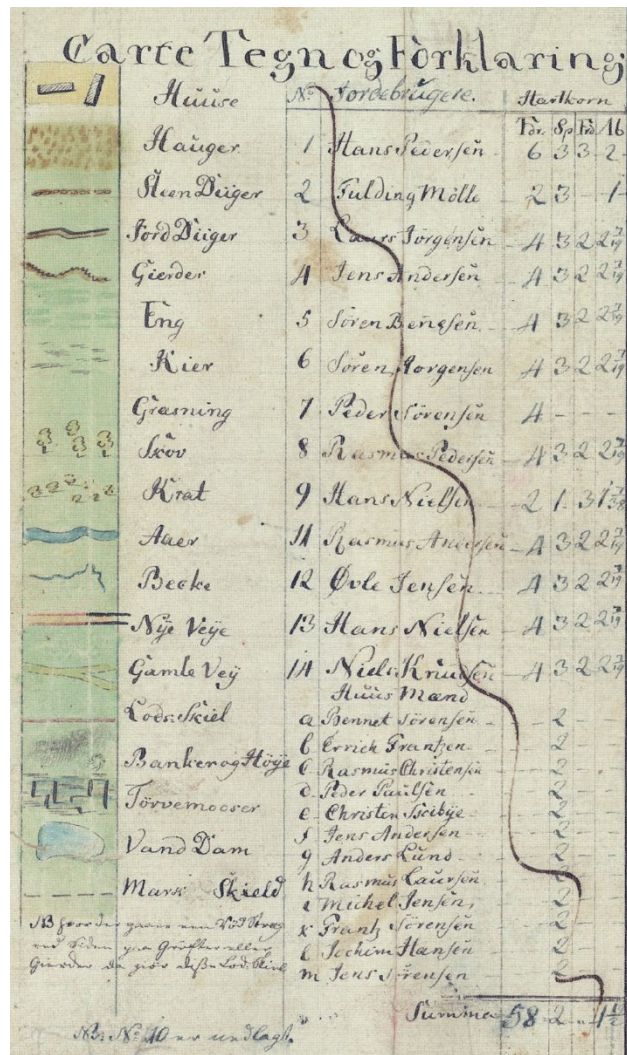 Carte Tegn og Forklaring
Huuse
Hauger
Steen Diiger
Jord Diiger
Gierder
Eng
Kier
Græsning
Skov
Krat
Aaer
Becke
Nÿe Veÿe
Gamle Veÿ
Lods Skiel
Banker og Höÿe
Törvemooser
Vand Dam
Mark Skield
NB hvor der gaaer een Röd Streg
ved Siden paa Grøfter eller
Gierder da giør disse Lod Skiel
No Jordebrugere. Hartkorn
Tdr. Sp Frd Alb
1 Hans Pedersen 6 3 3 2
2 Fulding Mölle 2 3 - 1
3 Laurs Jörgensen 4 3 2 2 7/19
4 Jens Andersen 4 3 2 2 7/19
5 Sören Bengsen 4 3 2 2 7/19
6 Sören Jorgensen 4 3 2 2 7/19
7 Peder Sörensen 4 - - -
8 Rasmus Pedersen 4 3 2 2 7/19
9 Hans Nielsen 2 1 3 1
11 Rasmus Andersen 4 3 2 2 7/19
12 Øvle Jensen 4 3 2 2 7/19
13 Hans Nielsen 4 3 2 2 7/19
14 Niels Knudsen 4 3 2 2 7/19
Huus Mænd
a Bennet Sörensen 2
b Errich Frantzen 2
c Rasmus Christensen 2
d Peder Paulsen 2
e Christen 2
f Jens Andersen 2
g Anders Lund 2
h Rasmus Laursen 2
i Michel Jensen 2
k Frantz Sörensen 2
l Jochim Hansen 2
m Jens Sörensen 2
Summa 58 - 2 - 1 1/2
NB: No 10 er nedlagt.